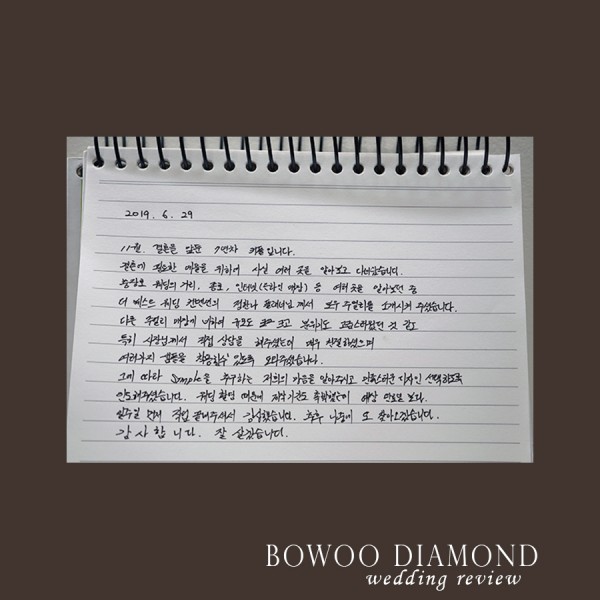 2019. 6. 29
11월. 결혼을 앞둔 7년차 커플입니다.
결혼에 필요한 예물을 위하여 사실 여러 곳을 알아보고 다녀왔습니다.
청담로 웨딩의 거리, 종로, 인터넷(온라인 매장) 등 여러곳을 알아보던 중
더 베스트 웨딩 컨벤션의 플래너님께서 보우 주얼리를 소개시켜 주셨습니다.
다른 주얼리 매장에 비하여 규모도 크고 분위기도 고급스러웠던 것 같고
특히 사장님께서 직접 상담을 해주셨는데 매우 친절하셨으며
여러가지 제품을 착용할수 있도록 도와주셨습니다.
그에 따라 Simple을 추구하는 저희의 마음을 알아주시고 만족스러운 디자인 선택하도록
인도해주셨습니다. 웨딩 촬영 때문에 제작기간도 촉박했는데 예상 만료일 보다.
일주일 먼저 작업 끝내주셔서 감사했습니다. 추후 나중에 또 찾아오겠습니다.
감사합니다. 잘 살겠습니다.
BOWOO DIAMOND
wedding review